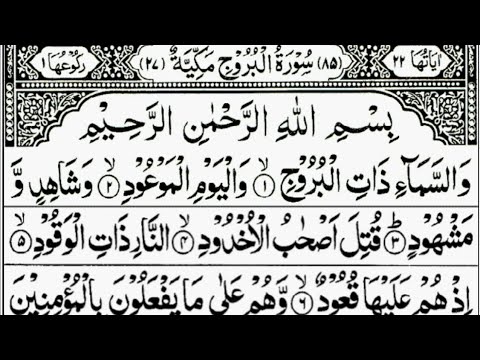 اٰيَاتُهَا ٢٢ (٨٥) سُوْرَةُ الْبُرُوْجِ مَكِّيَّةٌ (٢٤) رُكُوْعُهَا ١
بِسْمِ اللهِ الرَّحْمٰنِ الرَّحِيْمِ
وَالسَّمَآءِ ذَاتِ الْبُرُوْجِ ۙ١ وَالْيَوْمِ الْمَوْعُوْدِ ۙ٢ وَشَاهِدٍ وَّ
مَشْهُوْدٍ ؕ٣ قُتِلَ اَصْحٰبُ الْاُخْدُوْدِ ۙ٤ النَّارِ ذَاتِ الْوَقُوْدِ ۙ٥
اِذْ هُمْ عَلَيْهَا قُعُوْدٌ ۙ٦ وَّهُمْ عَلٰى مَا يَفْعَلُوْنَ بِالْمُؤْمِنِيْنَ